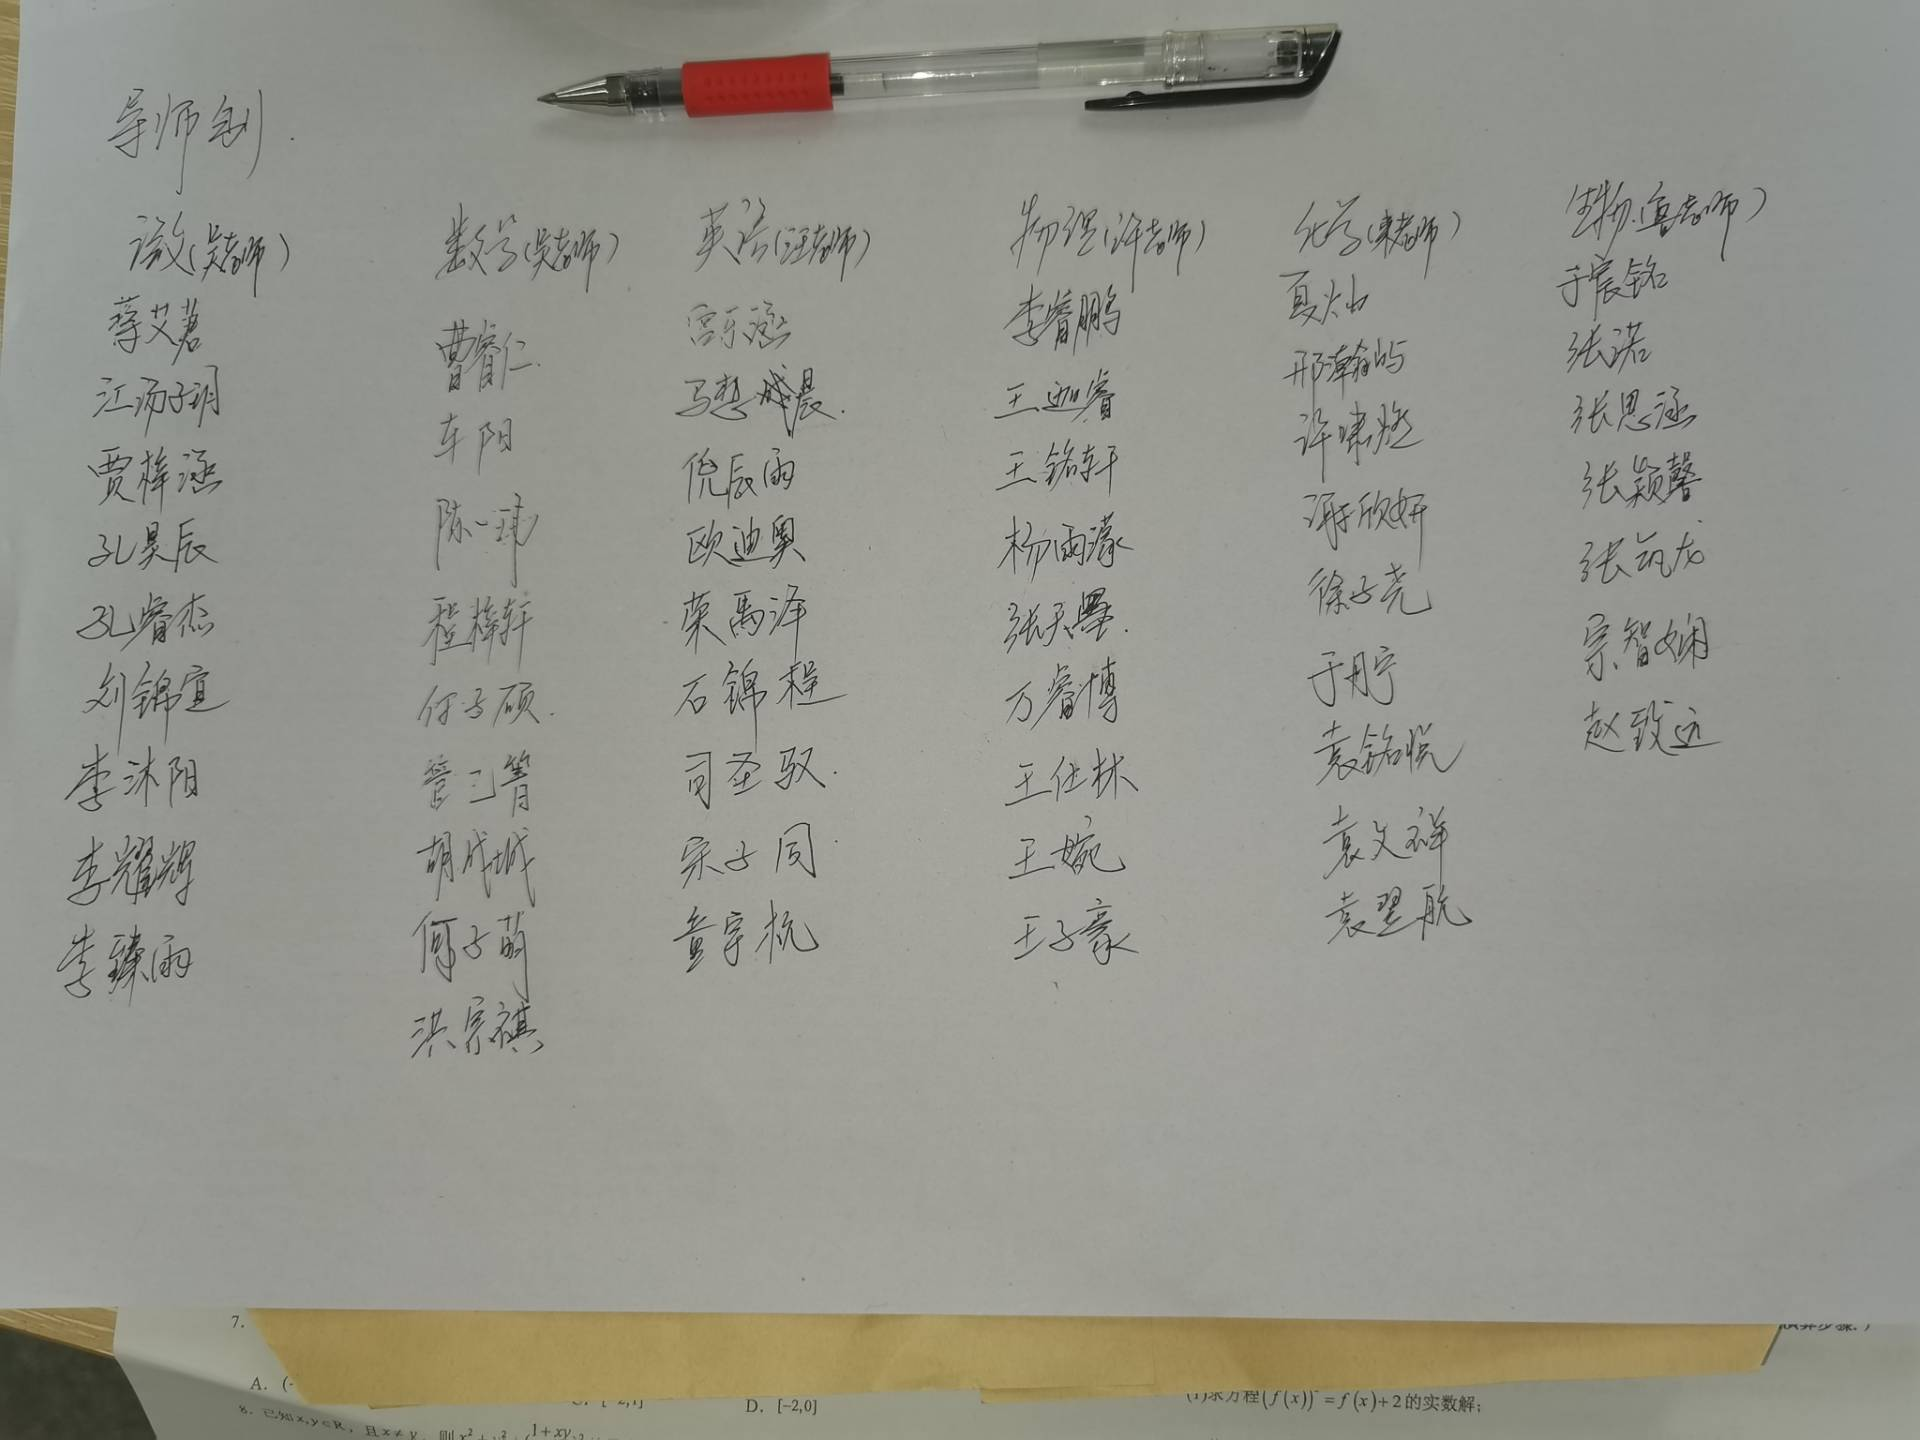 导师制
语文(吴老师)
蔡艾茗
江汤子玥
贾梓涵
孔昊辰
孔睿杰
刘锦宣
李沐阳
李耀辉
李臻雨
数学(吴老师)
曹睿仁
车阳
陈一玮
程梓轩
何子硕
管己箐
胡成城
何子萌
洪宗祺
英语(汪老师)
宫乐涵
马想成晨
倪辰雨
欧迪奥
荣禹泽
石锦程
司圣驭
宋子同
童宇杭
物理(许老师)
李睿鹏
王迦睿
王铭轩
杨雨濛
张天墨
万睿博
王仕林
王婉
王子豪
化学(来老师)
夏灿
邢瀚屿
许啸燃
谢欣妍
徐子尧
于月宁
袁铭悦
袁文祥
袁翌航
生物(鲁老师)
于宸铭
张诺
张思涵
张颖馨
张筑龙
宗智娴
赵致远
7.
A. (-
D. [-2,0]
(1)求方程(f(x))²=f(x)+2的实数解;
8. 已知x,y∈R, 且x≠y